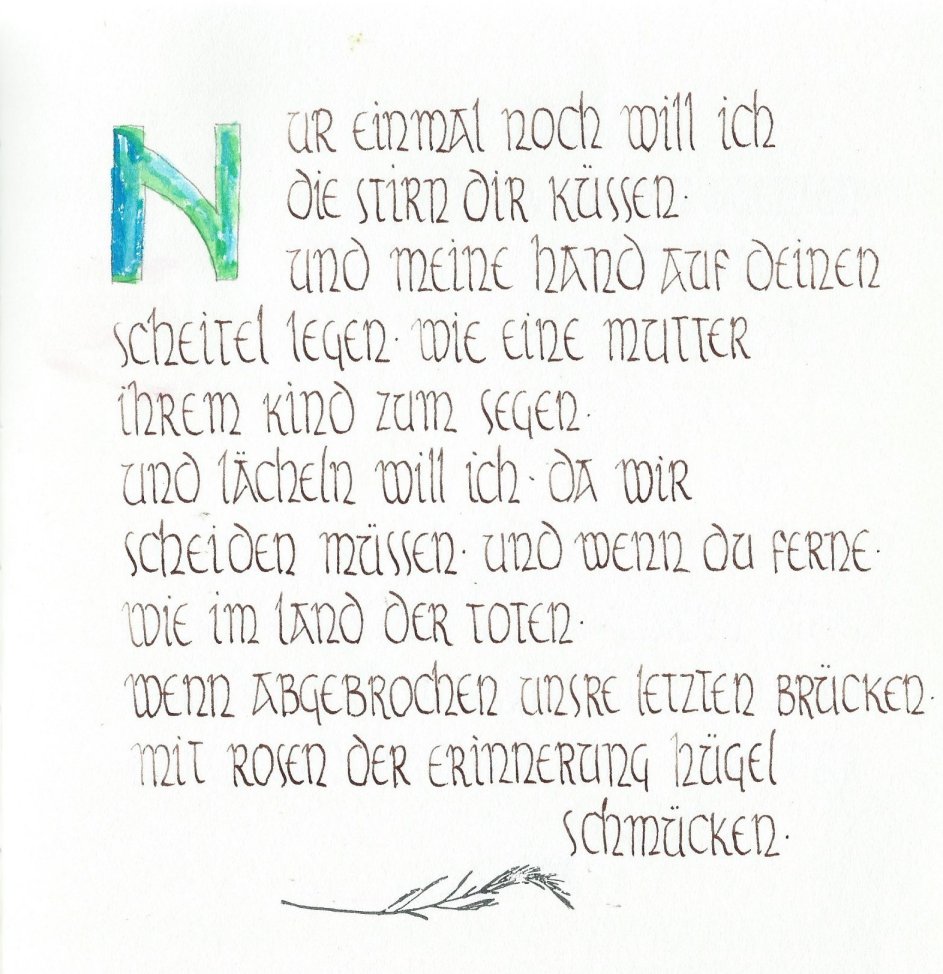 Nur einmal noch will ich
die Stirn dir küssen·
und meine Hand auf deinen
Scheitel legen· wie eine Mutter
ihrem Kind zum Segen·
und lächeln will ich· da wir
scheiden müssen· und wenn du ferne·
wie im Land der Toten·
wenn abgebrochen unsre letzten Brücken·
mit Rosen der Erinnerung Hügel
schmücken·